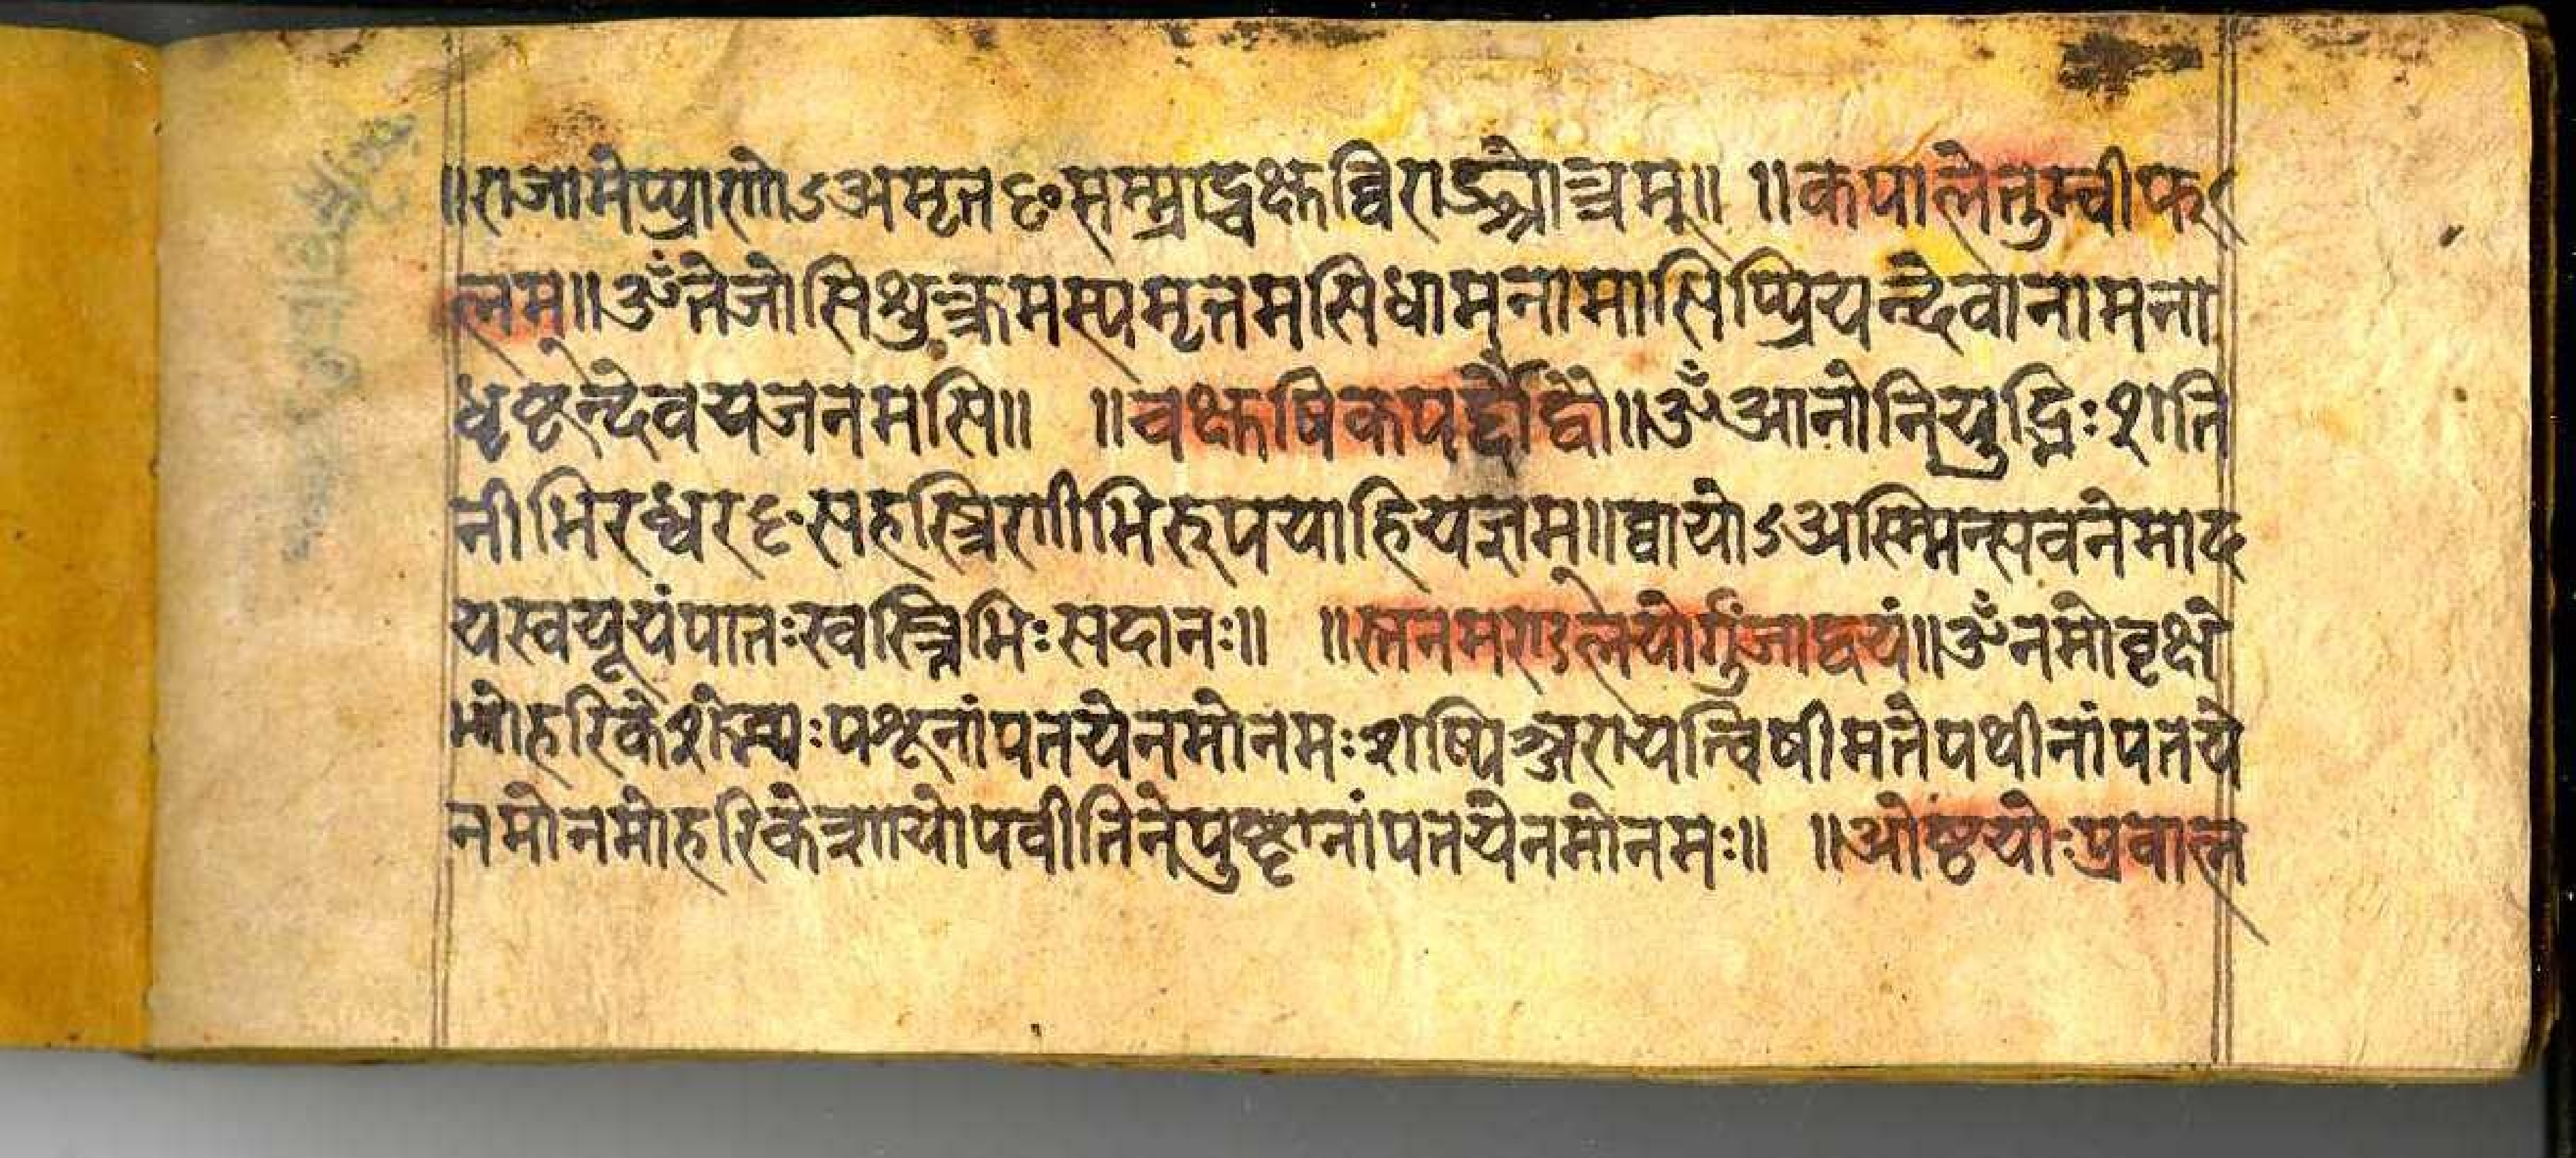 ॥राजामेप्प्राणोऽअमृतᳪसम्म्राट्चक्षुर्व्विराट्छ्रोत्रम्॥ ॥कपालेतुम्बीफ
लम्॥ॐतेजोसिशुक्रमस्यमृतमसिधामनामासिप्प्रियन्देवानामना
धृष्टन्देवयजनमसि॥ ॥चक्षुषिकपर्द्दौद्वौ॥ॐआनोनियुद्भिःशति
नीभिरध्वरᳪसहस्त्रिणीभिरुपयाहियज्ञम्॥व्वायोऽअस्म्मिन्त्सवनेमाद
यस्वयूयंपातःस्वस्तिभिःसदानः॥ ॥स्तनमण्डलयोर्गुंजाद्वयं॥ॐनमोवृक्षे
भ्योहरिकेशेभ्यःपशूनांपतयेनमोनमःशष्पिञ्जरायत्विषीमतेपथीनांपतये
नमोनमोहरिकेशायोपवीतिनेपुष्टानांपतयेनमोनमः॥ ॥ओष्ठयोःप्रवाल